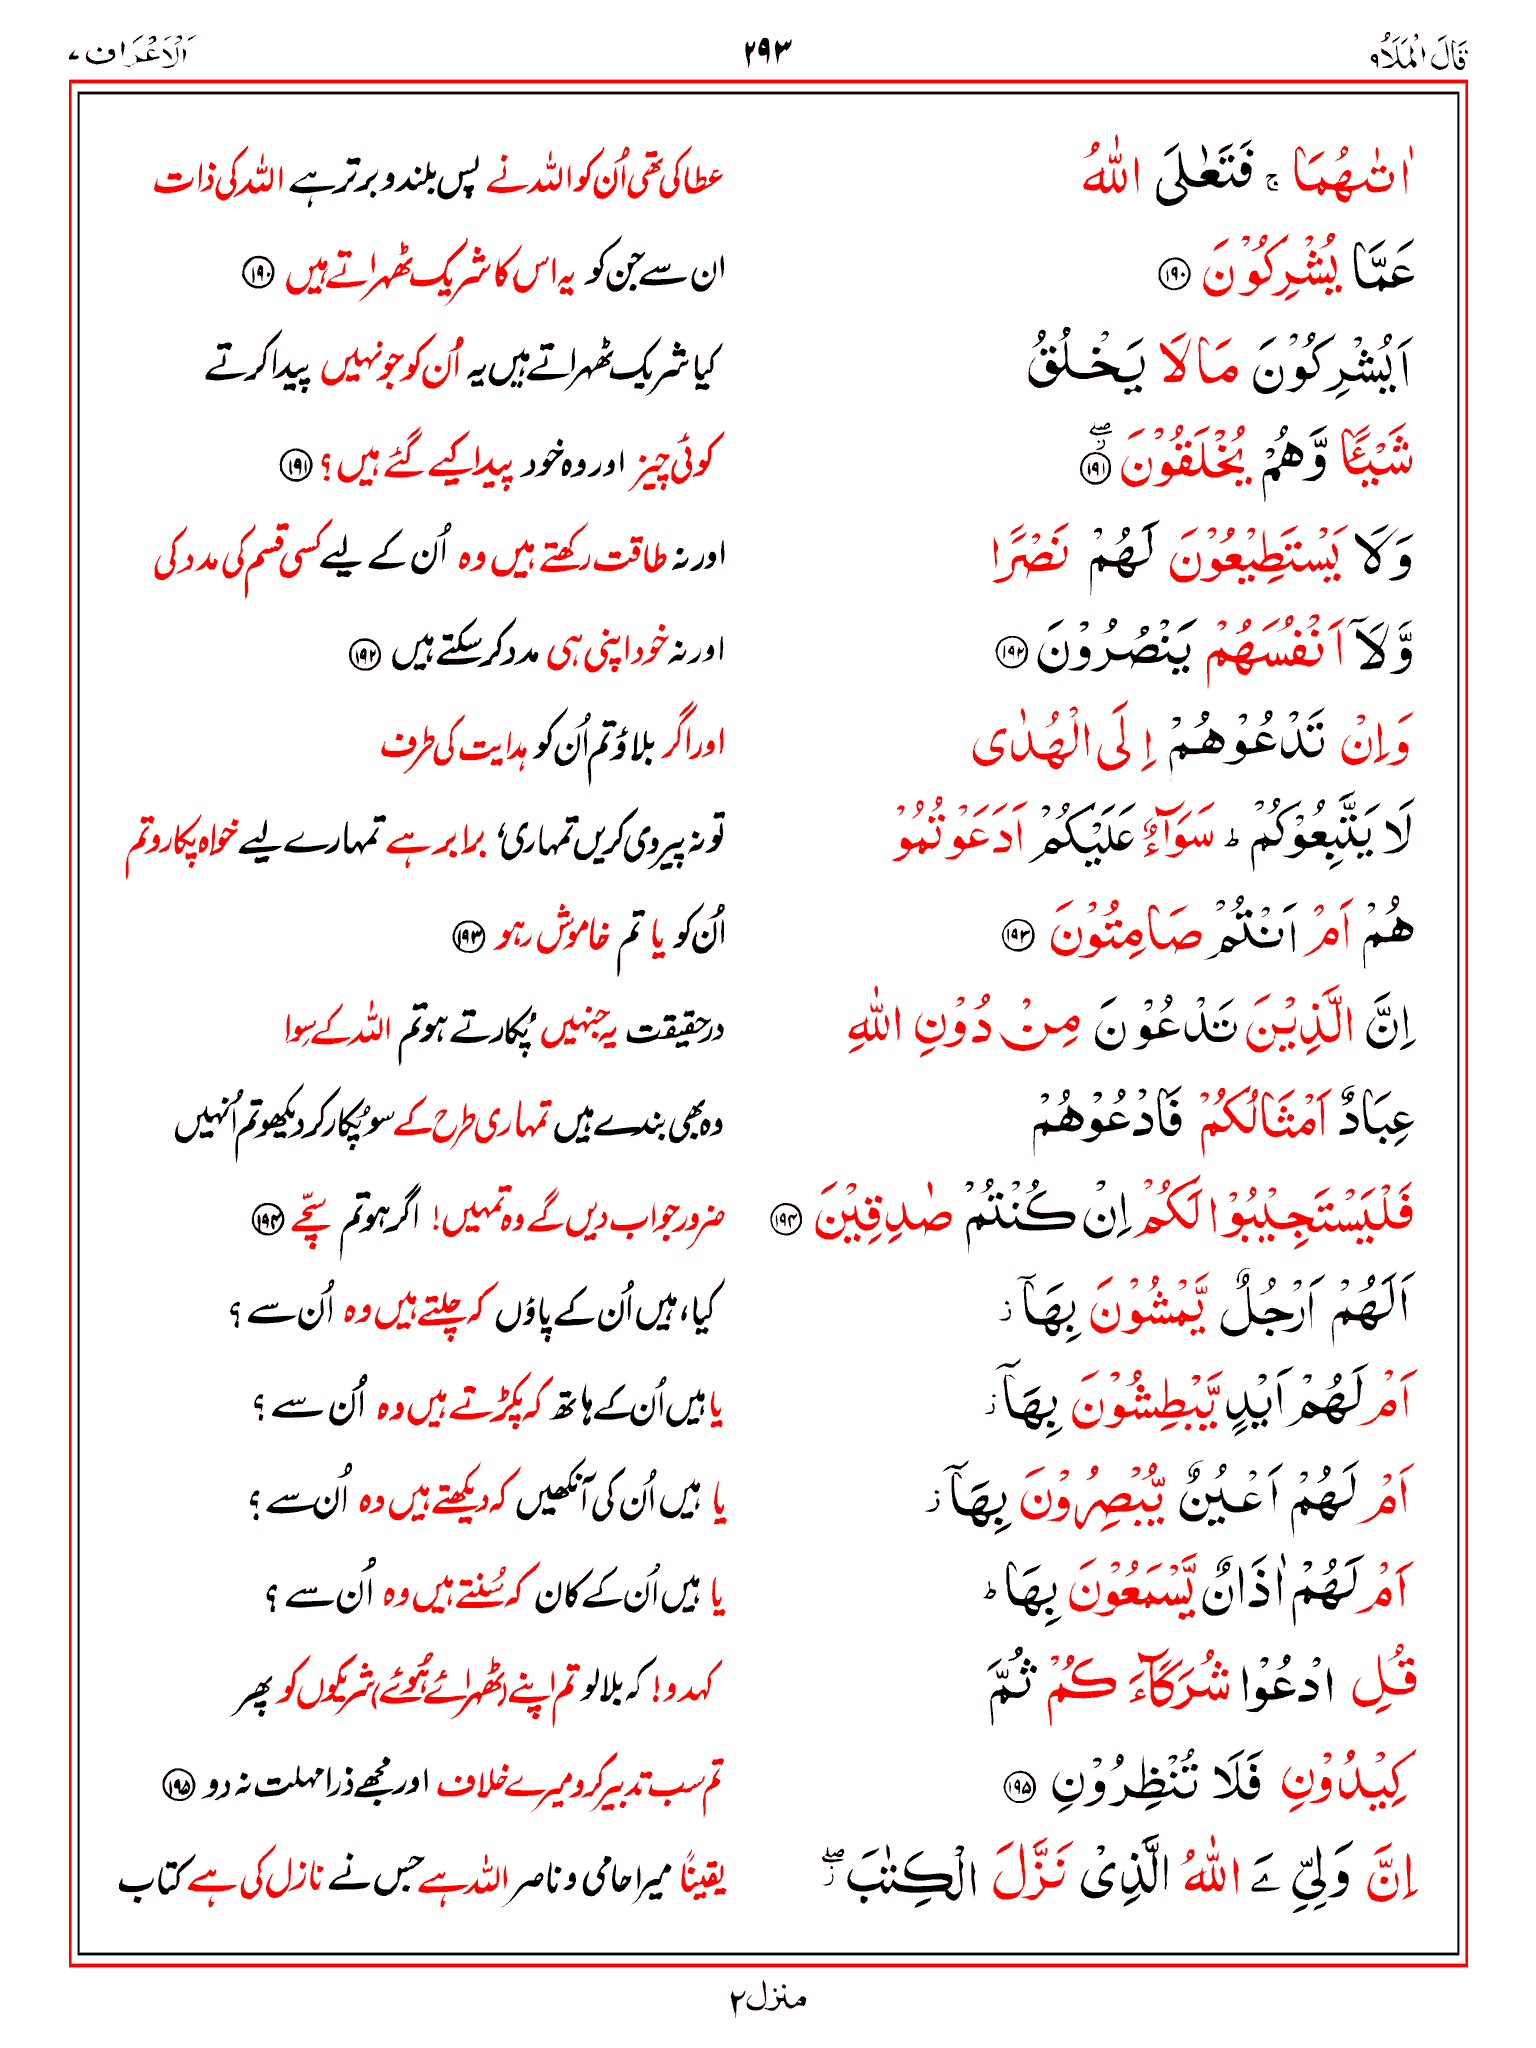 قَالَ الْمَلَاُ ٩
٢٩٣
اَلْاَعْرَاف ٧
اٰتٰىهُمَا ۚ فَتَعٰلَى اللّٰهُ
عطا کی تھی اُن کو اللہ نے پس بلند و برتر ہے اللہ کی ذات
عَمَّا يُشْرِكُوْنَ ﴿١٩٠﴾
ان سے جن کو یہ اس کا شریک ٹھہراتے ہیں ﴿١٩٠﴾
اَيُشْرِكُوْنَ مَا لَا يَخْلُقُ
کیا شریک ٹھہراتے ہیں یہ اُن کو جو نہیں پیدا کرتے
شَيْـًٔا وَّهُمْ يُخْلَقُوْنَ ﴿١٩١﴾ۖ ز
کوئی چیز اور وہ خود پیدا کیے گئے ہیں؟ ﴿١٩١﴾
وَلَا يَسْتَطِيْعُوْنَ لَهُمْ نَصْرًا
اور نہ طاقت رکھتے ہیں وہ اُن کے لیے کسی قسم کی مدد کی
وَّلَاۤ اَنْفُسَهُمْ يَنْصُرُوْنَ ﴿١٩٢﴾
اور نہ خود اپنی ہی مدد کر سکتے ہیں ﴿١٩٢﴾
وَاِنْ تَدْعُوْهُمْ اِلَى الْهُدٰى
اور اگر بلاؤ تم اُن کو ہدایت کی طرف
لَا يَتَّبِعُوْكُمْ ؕ سَوَآءٌ عَلَيْكُمْ اَدَعَوْتُمُوْ
تو نہ پیروی کریں تمہاری، برابر ہے تمہارے لیے خواہ پکارو تم
هُمْ اَمْ اَنْتُمْ صَامِتُوْنَ ﴿١٩٣﴾
اُن کو یا تم خاموش رہو ﴿١٩٣﴾
اِنَّ الَّذِيْنَ تَدْعُوْنَ مِنْ دُوْنِ اللّٰهِ
درحقیقت یہ جنہیں پُکارتے ہو تم اللہ کے سِوا
عِبَادٌ اَمْثَالُكُمْ فَادْعُوْهُمْ
وہ بھی بندے ہیں تمہاری طرح کے سو پُکار کر دیکھو تم اُنہیں
فَلْيَسْتَجِيْبُوْا لَكُمْ اِنْ كُنْتُمْ صٰدِقِيْنَ ﴿١٩٤﴾
ضرور جواب دیں گے وہ تمہیں! اگر ہو تم سچّے ﴿١٩٤﴾
اَلَهُمْ اَرْجُلٌ يَّمْشُوْنَ بِهَاۤ ز
کیا، ہیں اُن کے پاؤں کہ چلتے ہیں وہ اُن سے ؟
اَمْ لَهُمْ اَيْدٍ يَّبْطِشُوْنَ بِهَاۤ ز
یا ہیں اُن کے ہاتھ کہ پکڑتے ہیں وہ اُن سے ؟
اَمْ لَهُمْ اَعْيُنٌ يُّبْصِرُوْنَ بِهَاۤ ز
یا ہیں اُن کی آنکھیں کہ دیکھتے ہیں وہ اُن سے ؟
اَمْ لَهُمْ اٰذَانٌ يَّسْمَعُوْنَ بِهَا ؕ
یا ہیں اُن کے کان کہ سُنتے ہیں وہ اُن سے ؟
قُلِ ادْعُوْا شُرَكَآءَكُمْ ثُمَّ
کہدو! کہ بلا لو تم اپنے (ٹھہرائے ہُوئے) شریکوں کو پھر
كِيْدُوْنِ فَلَا تُنْظِرُوْنِ ﴿١٩٥﴾
تم سب تدبیر کرو میرے خلاف اور مجھے ذرا مہلت نہ دو ﴿١٩٥﴾
اِنَّ وَلِيِّ ےَ اللّٰهُ الَّذِيْ نَزَّلَ الْكِتٰبَ ۖ ز
یقیناً میرا حامی و ناصر اللہ ہے جس نے نازل کی ہے کتاب
منزل ٢